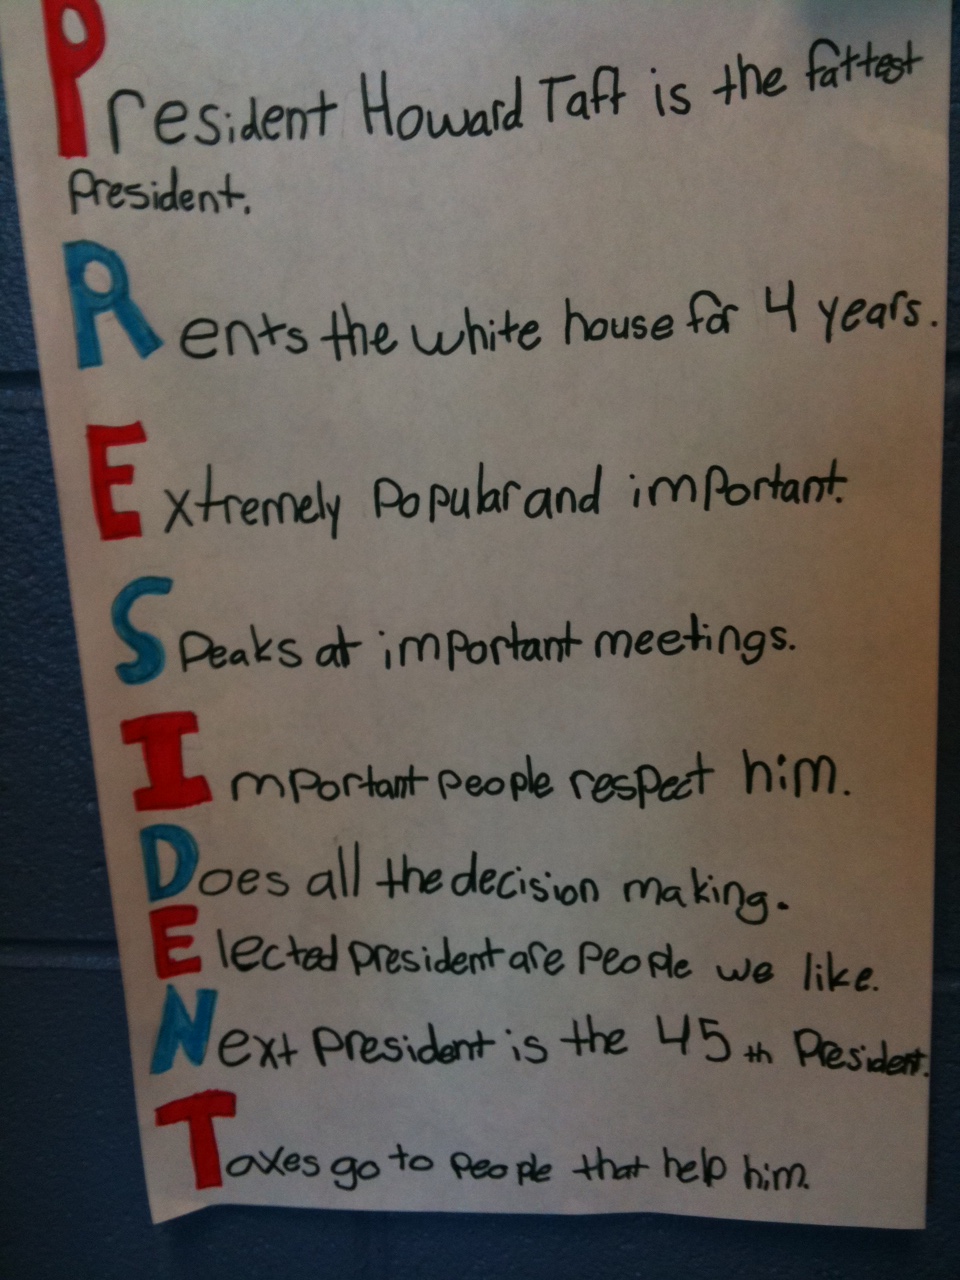 President Howard Taft is the fattest
President.
Rents the white house for 4 years.
Extremely Popular and important.
Speaks at important meetings.
Important people respect him.
Does all the decision making.
Elected president are people we like.
Next president is the 45th President.
Taxes go to people that help him.